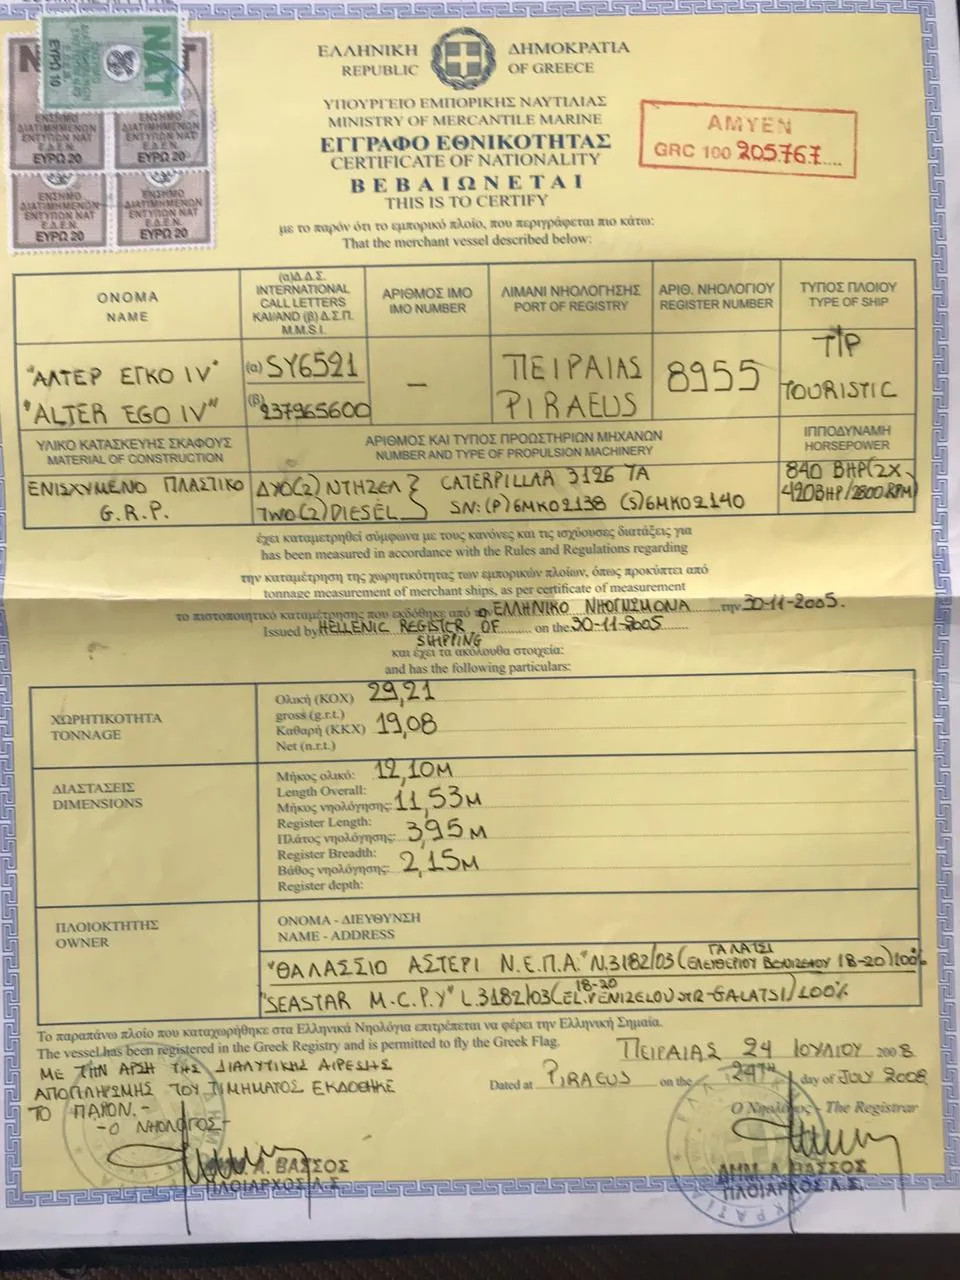 ΝΑΤ
ΕΥΡΩ 10
ΕΝΣΗΜΟ
ΔΙΑΤΙΜΗΜΕΝΩΝ
ΕΝΤΥΠΩΝ ΝΑΤ
Ε.Δ.Ε.Ν.
ΕΥΡΩ 20
ΕΝΣΗΜΟ
ΔΙΑΤΙΜΗΜΕΝΩΝ
ΕΝΤΥΠΩΝ ΝΑΤ
Ε.Δ.Ε.Ν.
ΕΥΡΩ 20
ΕΝΣΗΜΟ
ΔΙΑΤΙΜΗΜΕΝΩΝ
ΕΝΤΥΠΩΝ ΝΑΤ
Ε.Δ.Ε.Ν.
ΕΥΡΩ 20
ΕΝΣΗΜΟ
ΔΙΑΤΙΜΗΜΕΝΩΝ
ΕΝΤΥΠΩΝ ΝΑΤ
Ε.Δ.Ε.Ν.
ΕΥΡΩ 20
ΕΛΛΗΝΙΚΗ ΔΗΜΟΚΡΑΤΙΑ
REPUBLIC OF GREECE
ΥΠΟΥΡΓΕΙΟ ΕΜΠΟΡΙΚΗΣ ΝΑΥΤΙΛΙΑΣ
MINISTRY OF MERCANTILE MARINE
ΕΓΓΡΑΦΟ ΕΘΝΙΚΟΤΗΤΑΣ
CERTIFICATE OF NATIONALITY
ΒΕΒΑΙΩΝΕΤΑΙ
THIS IS TO CERTIFY
ΑΜΥΕΝ
GRC 100 205.767
με το παρόν ότι το εμπορικό πλοίο, που περιγράφεται πιο κάτω:
That the merchant vessel described below:
ΟΝΟΜΑ
NAME
(α)Δ.Δ.Σ.
INTERNATIONAL
CALL LETTERS
ΚΑΙ/AND (β) Δ.Σ.Π.
M.M.S.I.
ΑΡΙΘΜΟΣ ΙΜΟ
IMO NUMBER
ΛΙΜΑΝΙ ΝΗΟΛΟΓΗΣΗΣ
PORT OF REGISTRY
ΑΡΙΘ. ΝΗΟΛΟΓΙΟΥ
REGISTER NUMBER
ΤΥΠΟΣ ΠΛΟΙΟΥ
TYPE OF SHIP
"ΑΛΤΕΡ ΕΓΚΟ IV"
"ALTER EGO IV"
(α) SY6521
(β) 237965600
—
ΠΕΙΡΑΙΑΣ
PIRAEUS
8955
Τ/Ρ
TOURISTIC
ΥΛΙΚΟ ΚΑΤΑΣΚΕΥΗΣ ΣΚΑΦΟΥΣ
MATERIAL OF CONSTRUCTION
ΑΡΙΘΜΟΣ ΚΑΙ ΤΥΠΟΣ ΠΡΟΩΣΤΗΡΙΩΝ ΜΗΧΑΝΩΝ
NUMBER AND TYPE OF PROPULSION MACHINERY
ΙΠΠΟΔΥΝΑΜΗ
HORSEPOWER
ΕΝΙΣΧΥΜΕΝΟ ΠΛΑΣΤΙΚΟ
G.R.P.
ΔΥΟ(2) ΝΤΗΖΕΛ
TWO(2) DIESEL
CATERPILLAR 3126 TA
SN:(P)6MK02138 (S)6MK02140
840 BHP(2X
420BHP/2800 RPM)
έχει καταμετρηθεί σύμφωνα με τους κανόνες και τις ισχύουσες διατάξεις για
has been measured in accordance with the Rules and Regulations regarding
την καταμέτρηση της χωρητικότητας των εμπορικών πλοίων, όπως προκύπτει από
tonnage measurement of merchant ships, as per certificate of measurement
το πιστοποιητικό καταμέτρησης που εκδόθηκε από τον ΕΛΛΗΝΙΚΟ ΝΗΟΓΝΩΜΟΝΑ την 30-11-2005.
Issued by HELLENIC REGISTER OF on the 30-11-2005
SHIPPING
και έχει τα ακόλουθα στοιχεία:
and has the following particulars:
ΧΩΡΗΤΙΚΟΤΗΤΑ
TONNAGE
Ολική (ΚΟΧ) 29,21
gross (g.r.t.)
Καθαρή (ΚΚΧ) 19,08
Net (n.r.t.)
ΔΙΑΣΤΑΣΕΙΣ
DIMENSIONS
Μήκος ολικό: 12,10Μ
Length Overall:
Μήκος νηολόγησης: 11,53Μ
Register Length:
Πλάτος νηολόγησης: 3,95 Μ
Register Breadth:
Βάθος νηολόγησης: 2,15Μ
Register depth:
ΠΛΟΙΟΚΤΗΤΗΣ
OWNER
ΟΝΟΜΑ - ΔΙΕΥΘΥΝΣΗ
NAME - ADDRESS
ΓΑΛΑΤΣΙ
"ΘΑΛΑΣΣΙΟ ΑΣΤΕΡΙ Ν.Ε.Π.Α." Ν.3182/03 (ΕΛΕΥΘΕΡΙΟΥ ΒΕΝΙΖΕΛΟΥ 18-20) 100%
18-20
"SEASTAR M.C.P.Y" L.3182/03 (EL.VENIZELOU STR-GALATSI) 100%
Το παραπάνω πλοίο που καταχωρήθηκε στα Ελληνικά Νηολόγια επιτρέπεται να φέρει την Ελληνική Σημαία.
The vessel has been registered in the Greek Registry and is permitted to fly the Greek Flag.
ΠΕΙΡΑΙΑΣ 24 ΙΟΥΛΙΟΥ 2008
Dated at PIRAEUS on the 24TH day of JULY 2008
ΜΕ ΤΗΝ ΑΡΣΗ ΤΗΣ ΔΙΑΛΥΤΙΚΗΣ ΑΙΡΕΣΗΣ
ΑΠΟΠΛΗΡΩΜΗΣ ΤΟΥ ΤΙΜΗΜΑΤΟΣ ΕΚΔΟΘΗΚΕ
ΤΟ ΠΑΡΟΝ.-
-Ο ΝΗΟΛΟΓΟΣ-
Α. ΒΑΣΣΟΣ
ΠΛΟΙΑΡΧΟΣ Λ.Σ.
Ο Νηολόγος - The Registrar
ΔΗΜ. Α. ΒΑΣΣΟΣ
ΠΛΟΙΑΡΧΟΣ Λ.Σ.